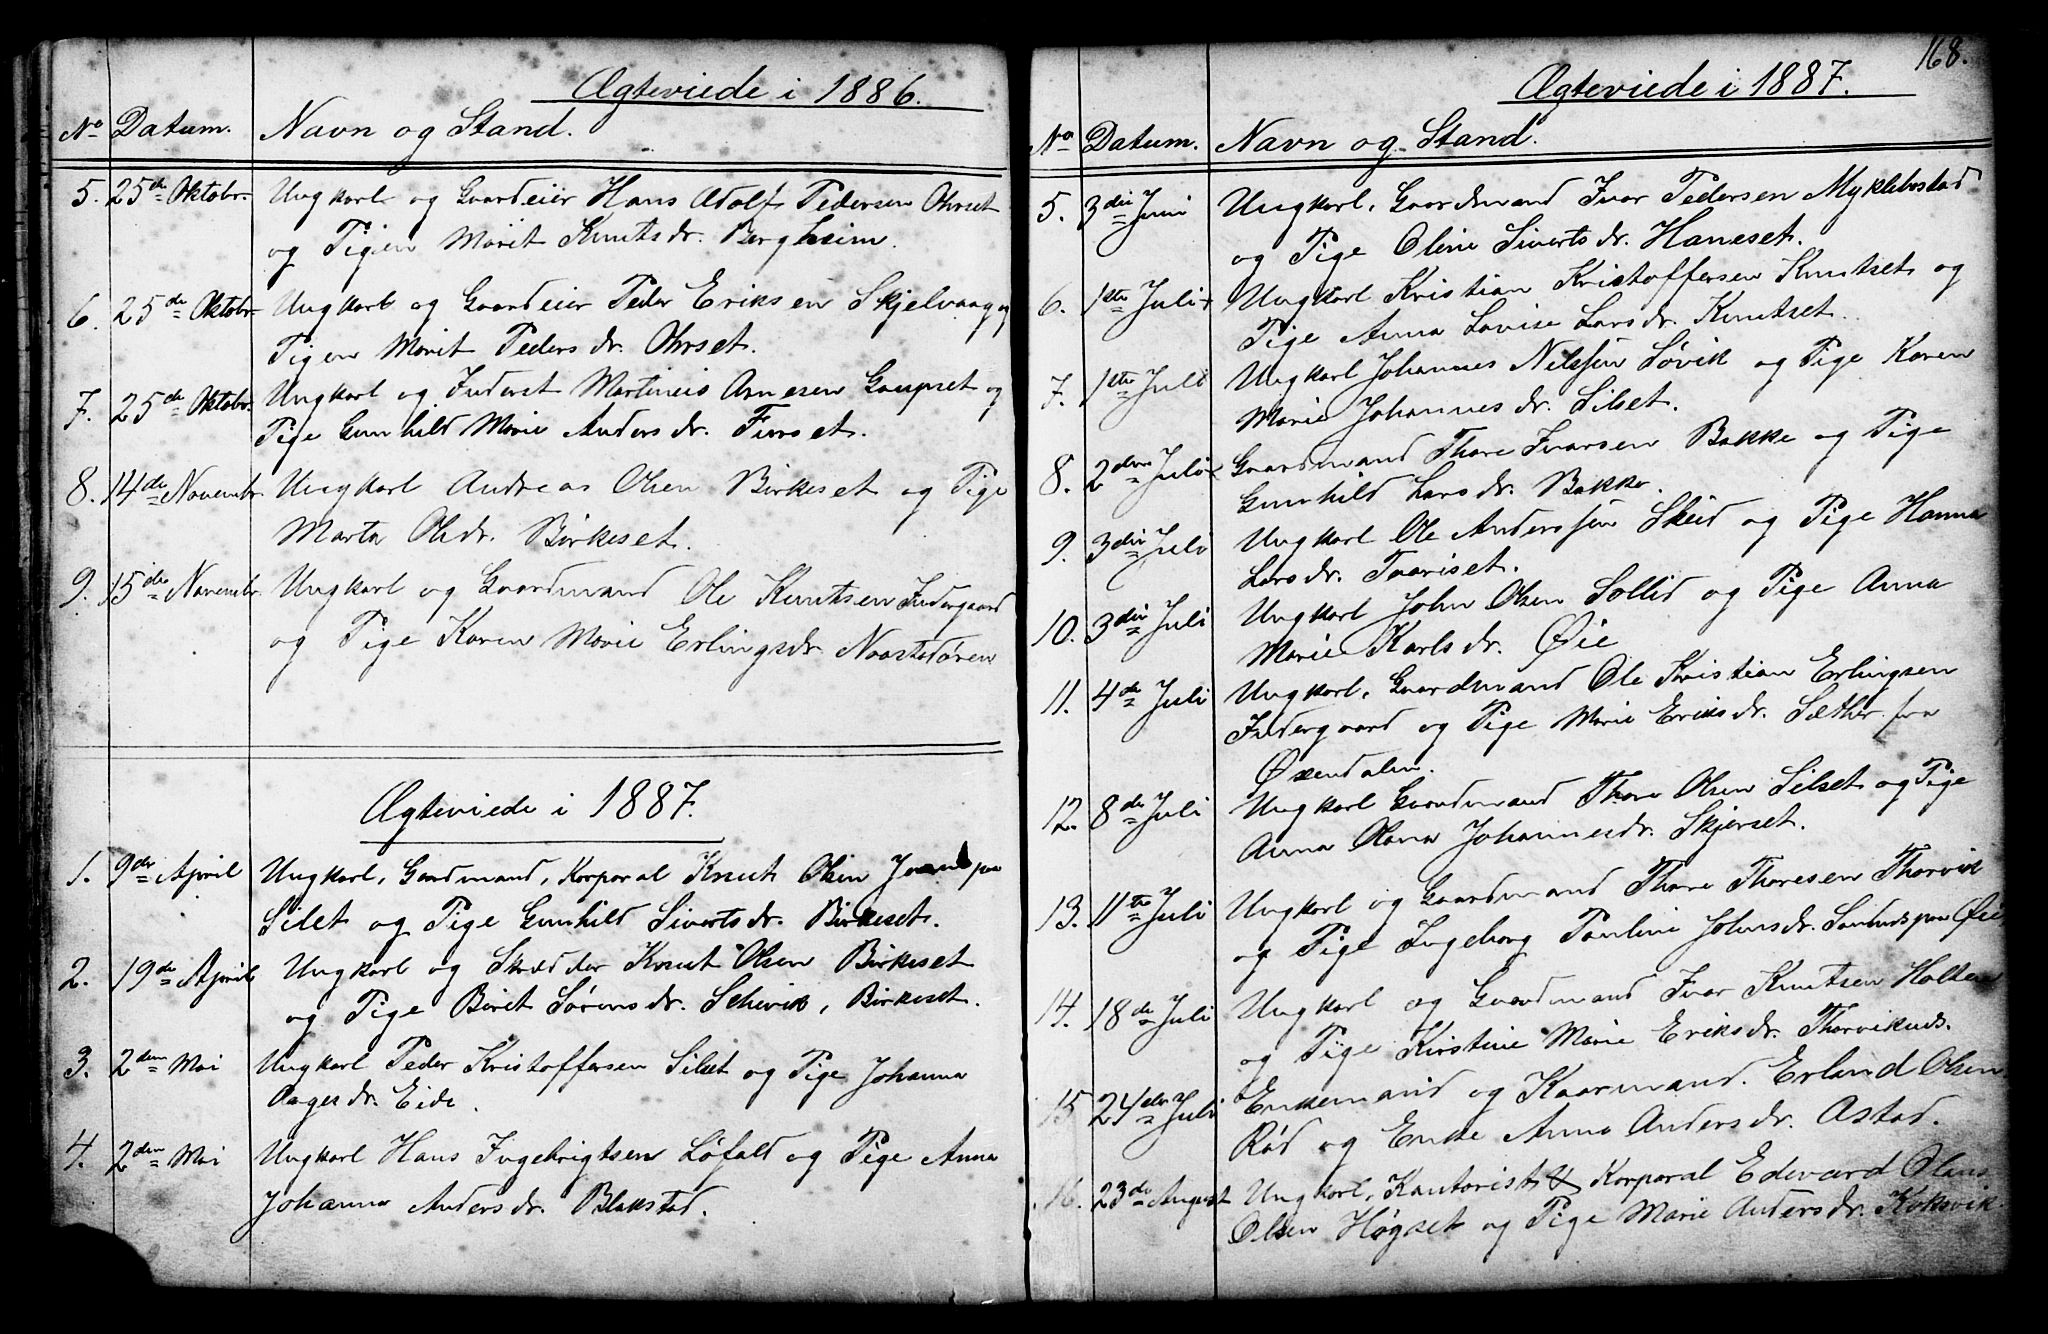 Ægteviede i 1886.
No Datum. Navn og Stand.
5. 25de Oktobr. Ungkarl og Gaardeier Hans Adolf Pedersen Ohrset
og Pigen Marit Knutsdr. Bergheim.
6. 25de Oktobr. Ungkarl og Gaardeier Peder Eriksen Skjelvaag og
Pigen Marit Pedersdr. Ohrset.
7. 25de Oktobr. Ungkarl og Inderst Martineis Arnesen Gaupset og
Pige Gunhild Marie Andersdr. Furset.
8. 14de Novembr. Ungkarl Andreas Olsen Birkeset og Pige
Marta Olsdr. Birkeset.
9. 15de Novembr. Ungkarl og Gaardmand Ole Knutsen Indergaard
og Pige Karen Marie Erlingsdr. Naastadøren
Ægteviede i 1887.
1. 9de April Ungkarl, Gaardmand, Korporal Knut Olsen paa
Silset og Pige Gunhild Sivertsdr. Birkeset.
2. 19de April Ungkarl og Skrædder Knut Olsen Birkeset
og Pige Beret Sørensdr. Schevik, Birkeset.
3. 2den Mai Ungkarl Peder Kristoffersen Silset og Pige Johanna
Aagesdr. Eide.
4. 2den Mai Ungkarl Hans Ingebrigtsen Løfald og Pige Anna
Johanna Andersdr. Blakstad.
168.
Ægteviede i 1887.
No Datum. Navn og Stand.
5. 3die Juni Ungkarl, Gaardmand Ivar Pedersen Myklebostad
og Pige Oline Sivertsdr. Haneset.
6. 1ste Juli Ungkarl Kristian Kristoffersen Knutset og
Pige Anna Lovise Larsdr. Knutset.
7. 1ste Juli Ungkarl Johannes Nilssen Søvik og Pige Karen
Marie Johannesdr. Silset.
8. 2den Juli Gaardmand Thore Ivarsen Bakke og Pige
Gunhild Larsdr. Bakke.
9. 3die Juli Ungkarl Ole Anderssen Skeid og Pige Hanna
Larsdr. Tvariset.
10. 3die Juli Ungkarl John Olsen Sollid og Pige Anna
Marie Karlsdr. Øie
11. 4de Juli Ungkarl, Gaardmand Ole Kristian Erlingsen
Indergaard og Pige Marie Eriksdr. Sæther fra
Øxendalen.
12. 8de Juli Ungkarl Gaardmand Thore Olsen Silset og Pige
Anna Olana Johannesdr. Skjerset.
13. 11te Juli Ungkarl og Gaardmand Thore Thoresen Thorvik
og Pige Ingeborg Pauline Johnsdr. Sandnes paa Øie
14. 18de Juli Ungkarl og Gaardmand Ivar Knutsen Holten
og Pige Kirstine Marie Eriksdr. Thorviknds.
15 24de Juli Enkemand og Kaarmand. Erland Olsen
Rød og Enke Anne Andersdr. Astad.
16. 23de August Ungkarl, Kantorist & Korporal Edevard Olaus
Olsen Høgset og Pige Marie Andersdr. Koksvik.